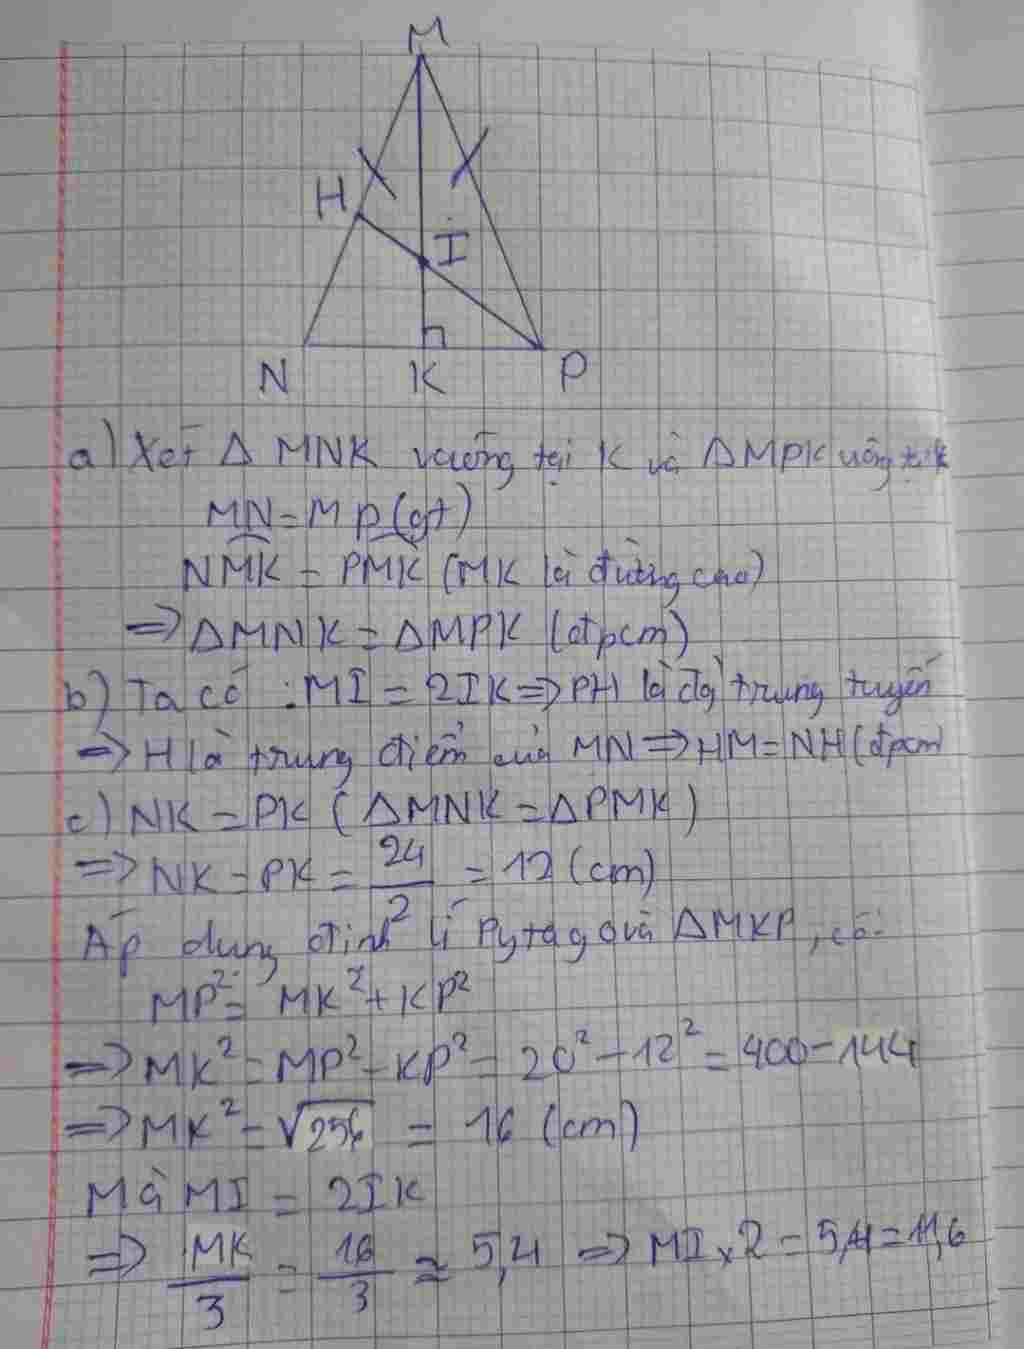 M
H
I
N K P
a) Xét Δ MNK vuông tại K và ΔMPK vuông tại K
MN = MP (gt)
NMK = PMK (MK là đường cao)
=> ΔMNK = ΔMPK (đpcm)
b) Ta có : MI = 2IK => PH là đg trung tuyến
=> H là trung điểm của MN => HM = NH (đpcm)
c) NK = PK ( ΔMNK = ΔPMK )
=> NK = PK = 24/2 = 12 (cm)
Áp dụng định lí Pytago và ΔMKP, có:
MP² = MK² + KP²
=> MK² = MP² - KP² = 20² - 12² = 400 - 144
=> MK² = √256 = 16 (cm)
Mà MI = 2IK
=> MK/3 = 16/3 ≈ 5,4 => MI x 2 = 5,4 = 11,6